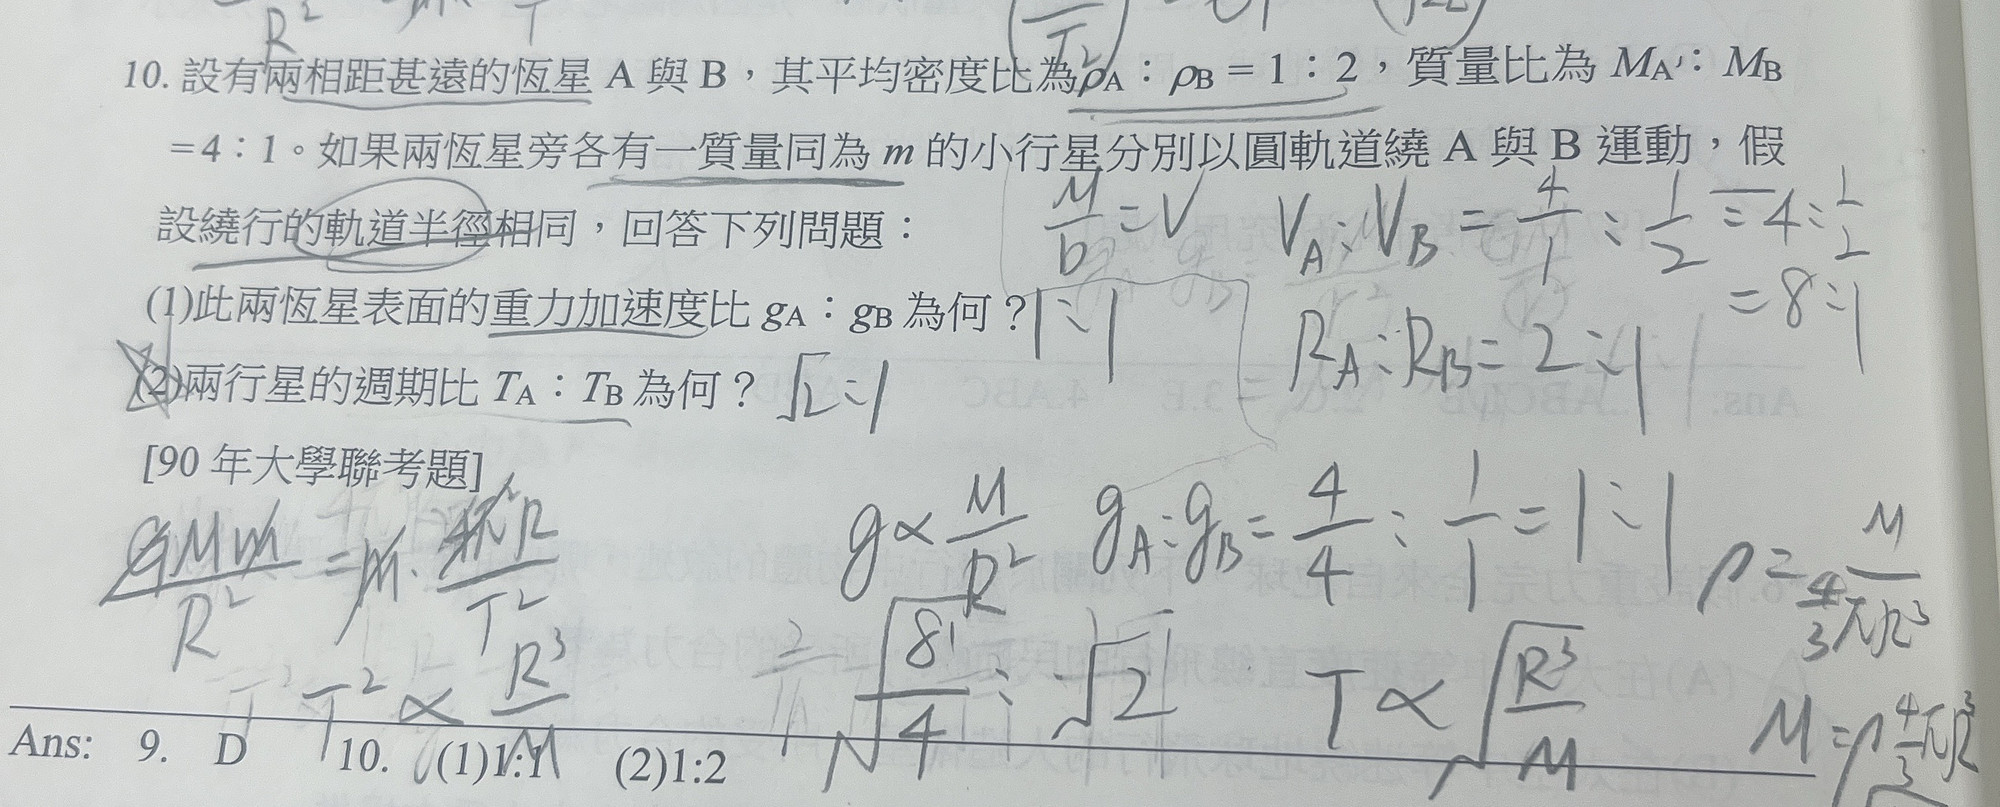 10. 設有兩相距甚遠的恆星 A 與 B，其平均密度比為 ρA：ρB = 1：2，質量比為 MA：MB
= 4：1。如果兩恆星旁各有一質量同為 m 的小行星分別以圓軌道繞 A 與 B 運動，假
設繞行的軌道半徑相同，回答下列問題：
M/D = V VA : VB = 4/1 : 1/2 = 4 : 1/2
= 8 : 1
(1)此兩恆星表面的重力加速度比 gA：gB 為何？ 1 : 1
RA : RB = 2 : 1
(2)兩行星的週期比 TA：TB 為何？ √2 : 1
[90 年大學聯考題]
GMm/R² = m · 4π²R/T²
g ∝ M/R² gA : gB = 4/4 : 1/1 = 1 : 1
ρ = M/(4/3 πR³)
T² ∝ R³/M
√(8/4) : √2
T ∝ √(R³/M)
M = ρ 4/3 πR³
Ans: 9. D 10. (1)1:1 (2)1:2